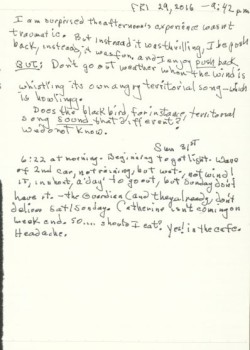 FRI 29, 2016 - 9:42 pm
I am surprised the afternoon's experience wasn't
traumatic. But instead it was thrilling, I be
back, instead, it was fun, and I enjoy push back.
BUT: Don't go out weather when the wind is
whistling its own angry territorial song - which
is howling.
Does the blackbird, for instance, territorial
song sound that different?
We do not know.
Sun 31st
6:22 at morning. Beginning to get light.
of 2nd car, not raining, but wet. not wind!
It, in short, a 'day' to go out, but Sunday don't
have it. - the Guardian (and they already, don't
deliver Sat/Sunday. Catherine isn't coming on
week end. So.... should I eat? yes! in the cafe.
Headache.